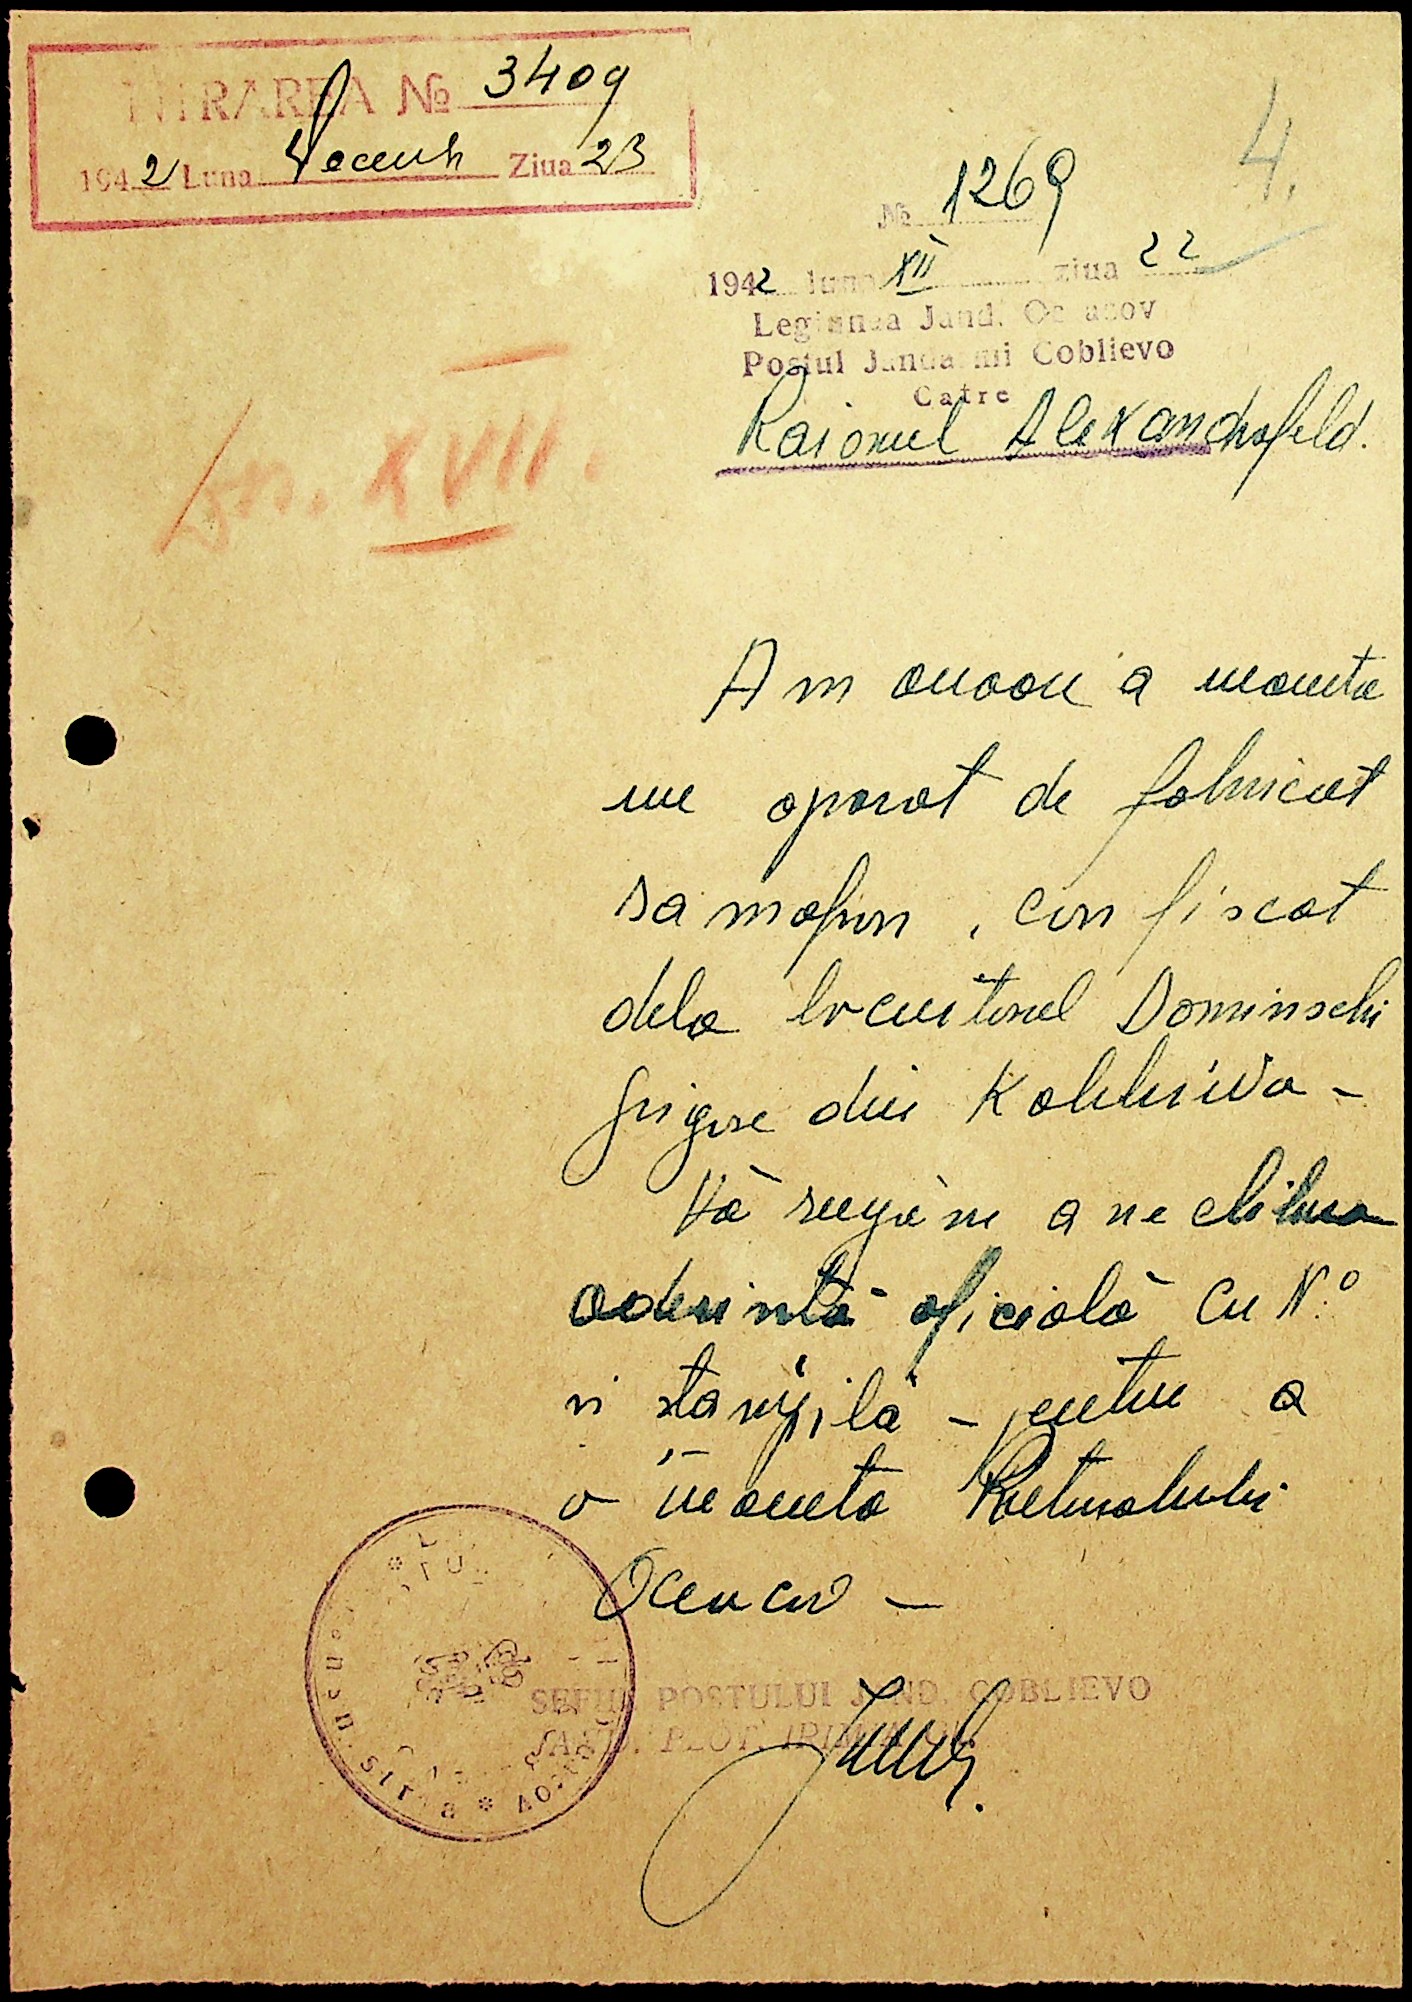 INTRAREA № 3409
1942 Luna Decemh Ziua 23
4.
№ 1269
1942 luna XII ziua 22
Legiunea Jand. Oceacov
Postul Jandarmi Coblievo
Catre
Raionul Alexandrofeld.
XVII.
Am onoare a inainta
un aparat de fabricat
samagon, confiscat
dela locuitorul Dominschi
Grigore din Koblieva –
Vă rugăm a ne elibera
aderintă oficială cu N.º
si stampilă – pentru a
o inainta Pretoratului
Oceacov –
SEFUL POSTULUI JAND. COBLIEVO
PLOT.